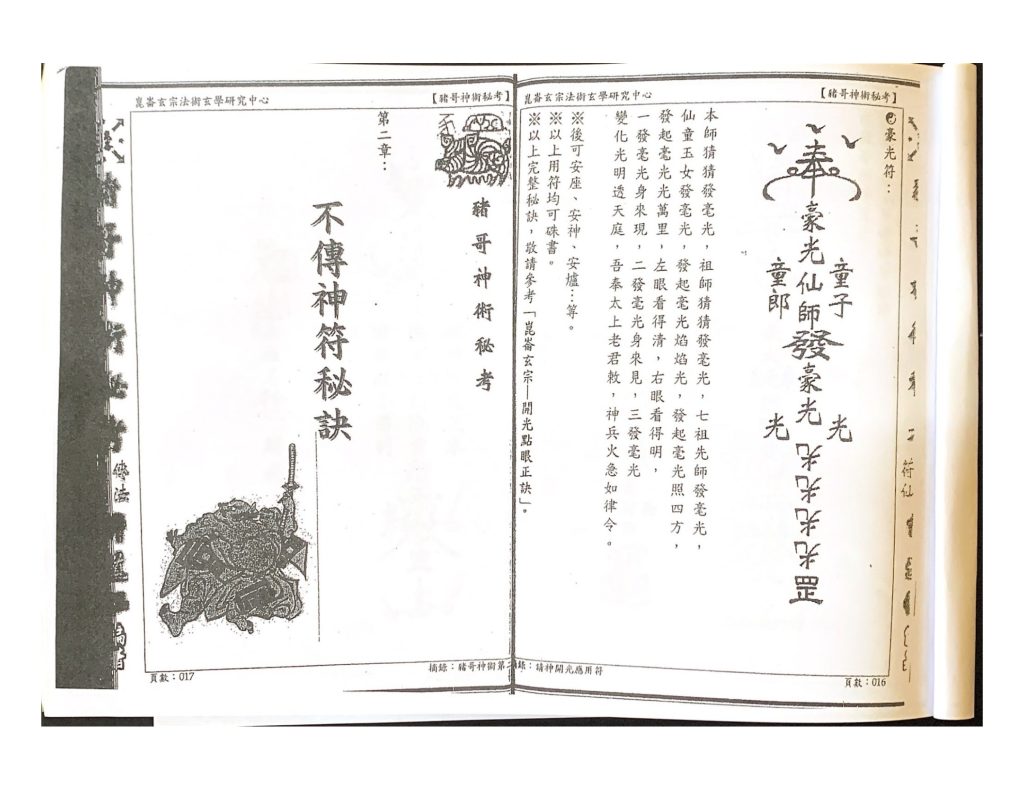 崑崙玄宗法術玄學研究中心
【豬哥神術秘考】
☯豪光符：
奉
豪光仙師發豪光
童子
童郎
光
光
光光光光罡
本師猜猜發毫光，祖師猜猜發毫光，七祖先師發毫光，
仙童玉女發毫光，發起毫光焰焰光，發起毫光照四方，
發起毫光光萬里，左眼看得清，右眼看得明，
一發毫光身來現，二發毫光身來見，三發毫光
變化光明透天庭，吾奉太上老君敕，神兵火急如律令。
※後可安座、安神、安爐…等。
※以上用符均可硃書。
※以上完整秘訣，敬請參考「崑崙玄宗—開光點眼正訣」。
摘錄：請神開光應用符
頁數：016
崑崙玄宗法術玄學研究中心
【豬哥神術秘考】
豬哥神術秘考
第二章：
不傳神符秘訣
摘錄：豬哥神術第二
頁數：017
符仙